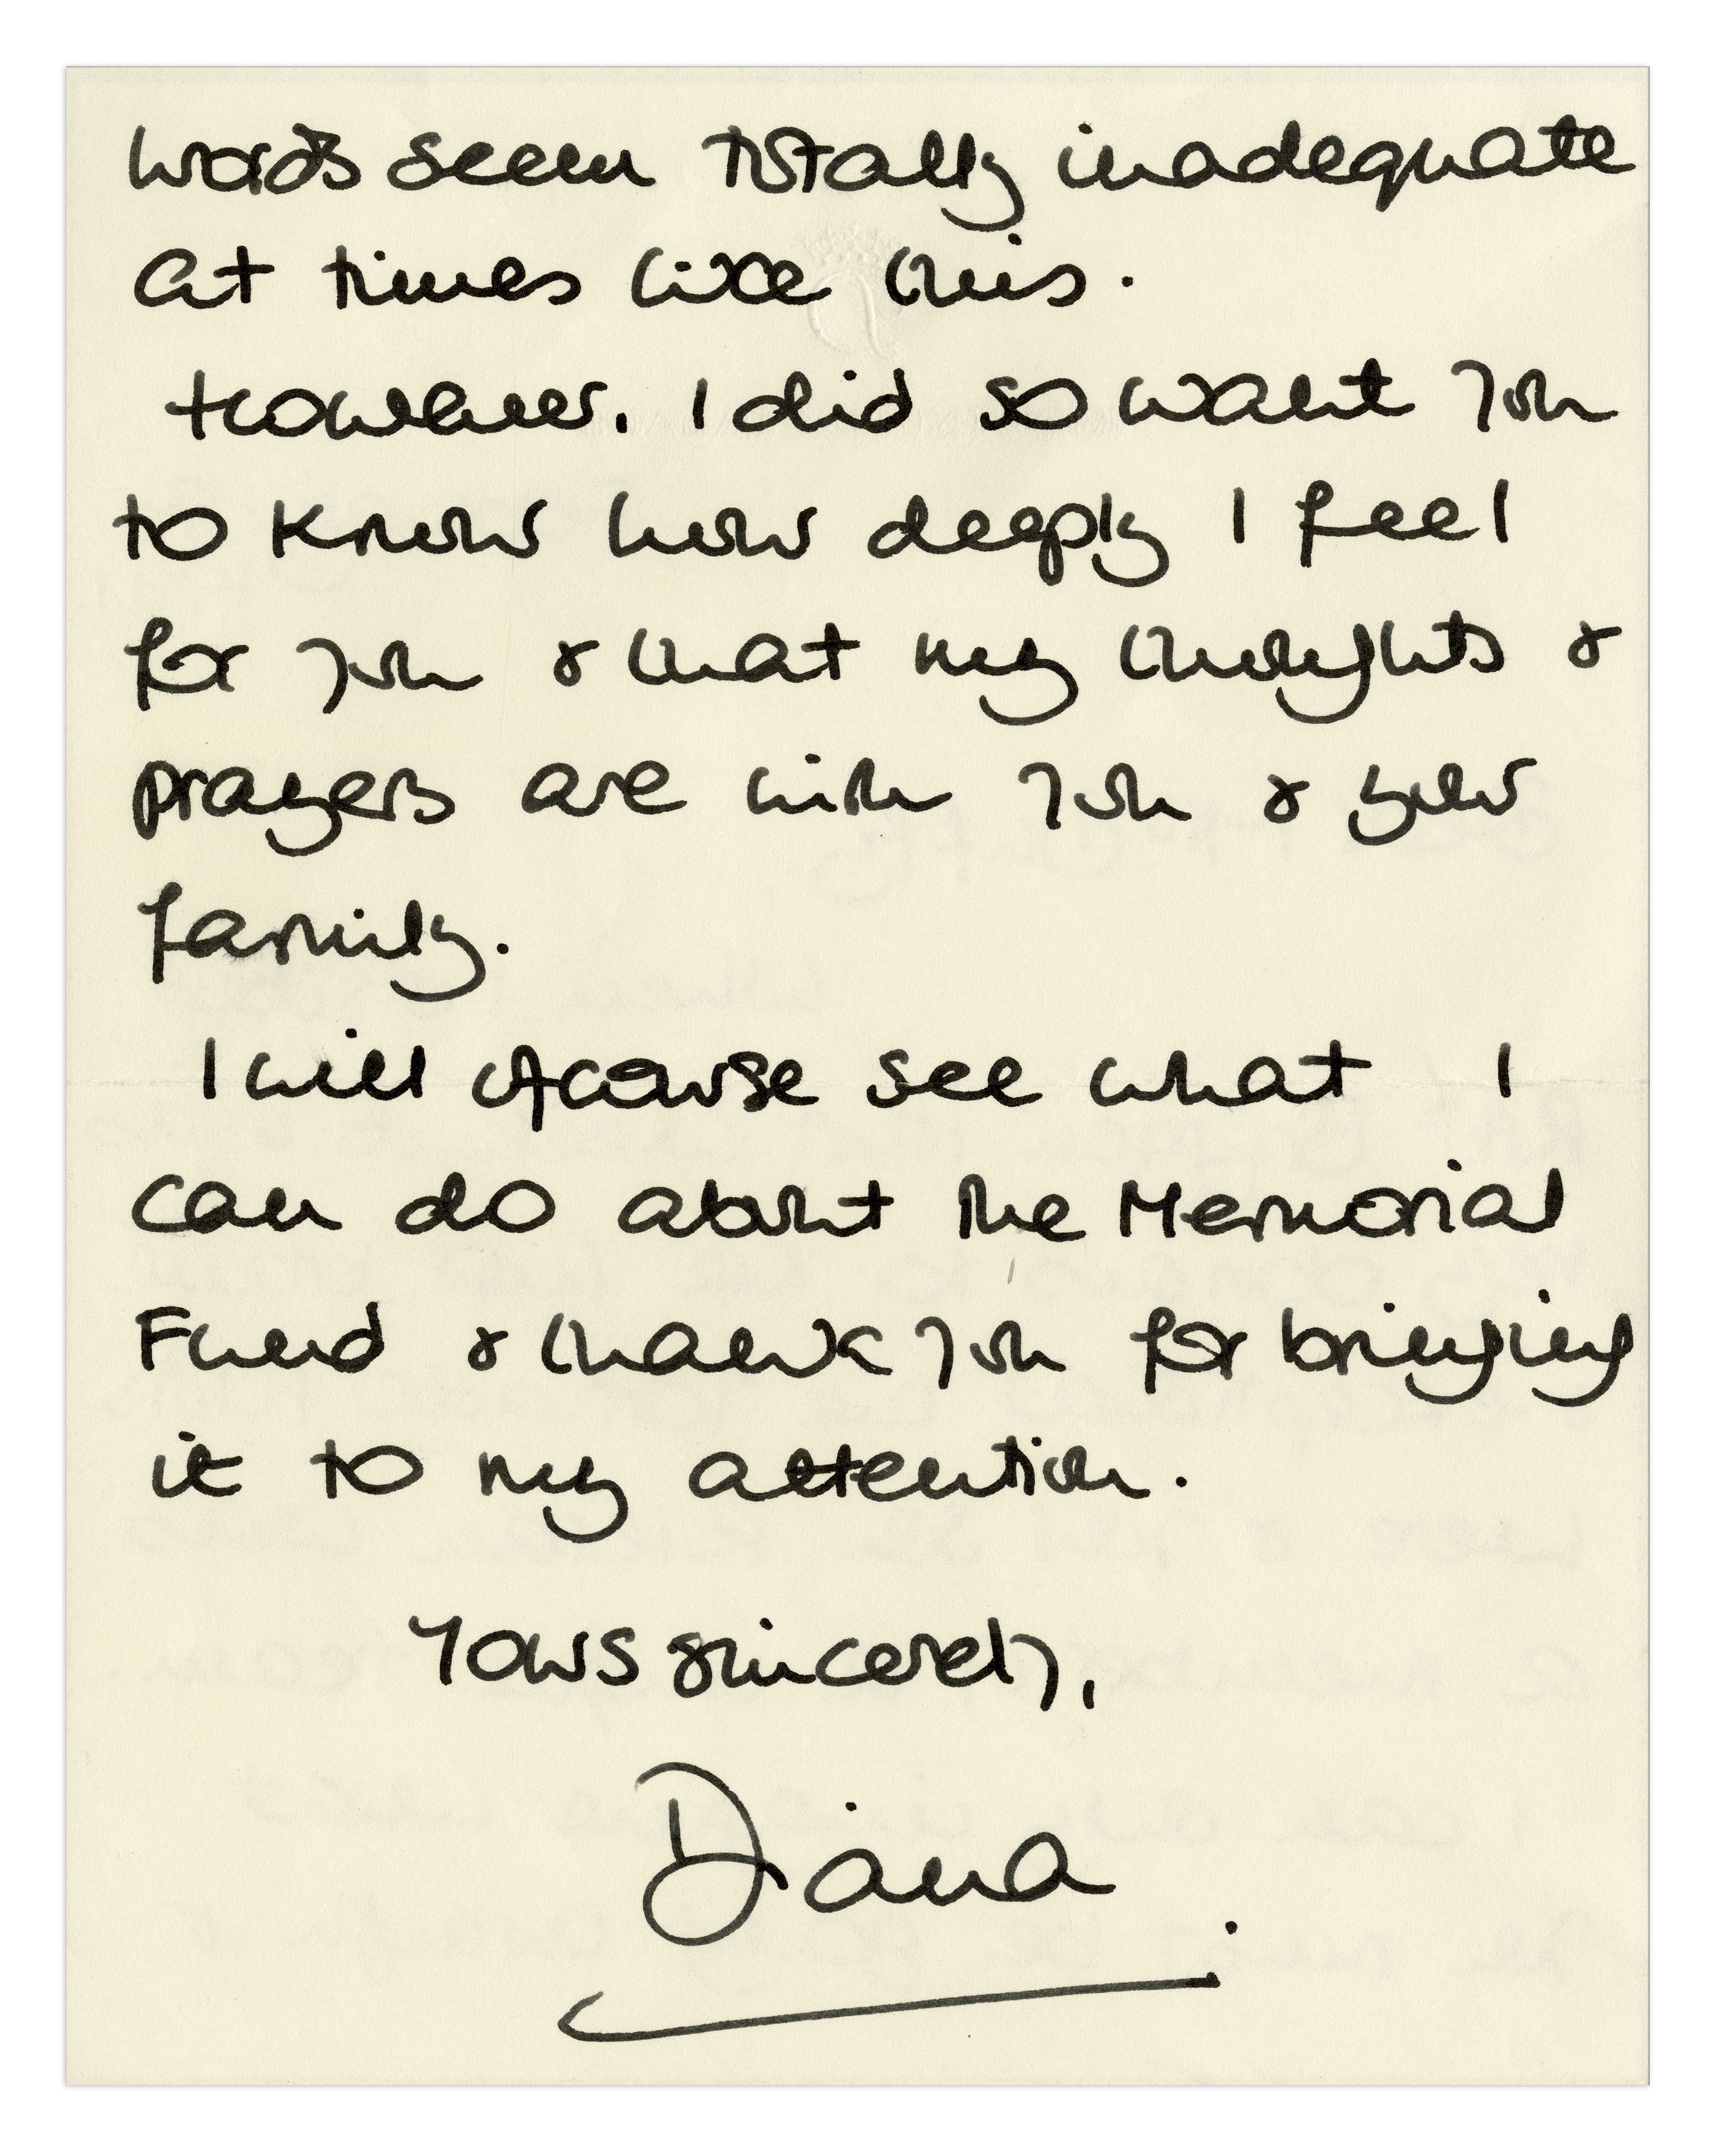 words seem totally inadequate
at times like this.
However, I did so want you
to know how deeply I feel
for you & that my thoughts &
prayers are with you & your
family.
I will ofcourse see what I
can do about the Memorial
Fund & thank you for bringing
it to my attention.
Yours sincerely,
Diana.